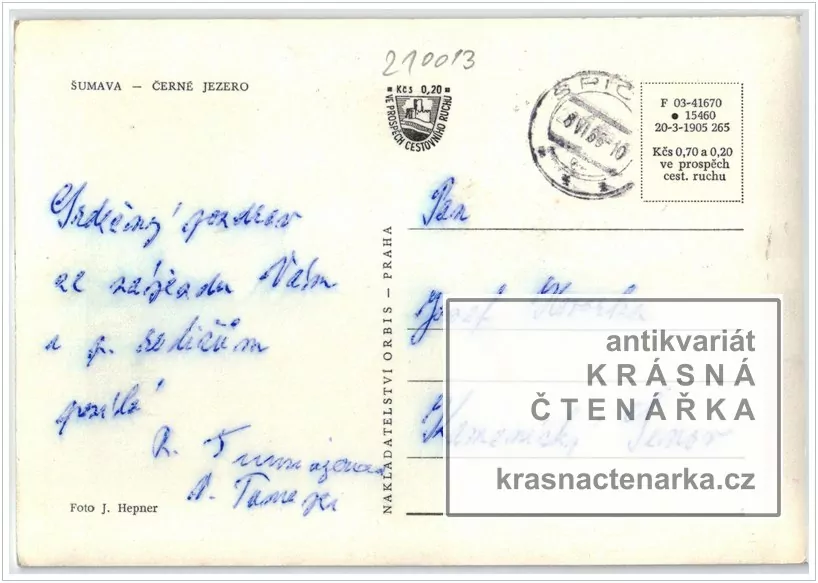 210013
ŠUMAVA — ČERNÉ JEZERO
Kčs 0,20
VE PROSPĚCH CESTOVNÍHO RUCHU
ŠPIČ
8.VI.66-10
F 03-41670
15460
20-3-1905 265
Kčs 0,70 a 0,20
ve prospěch
cest. ruchu
Srdečný pozdrav
ze zájezdu Vám
a p. rodičům
posílá
R.
Foto J. Hepner
NAKLADATELSTVÍ ORBIS — PRAHA
Pan
Josef
Kamenický Šenov
antikvariát
KRÁSNÁ
ČTENÁŘKA
krasnactenarka.cz